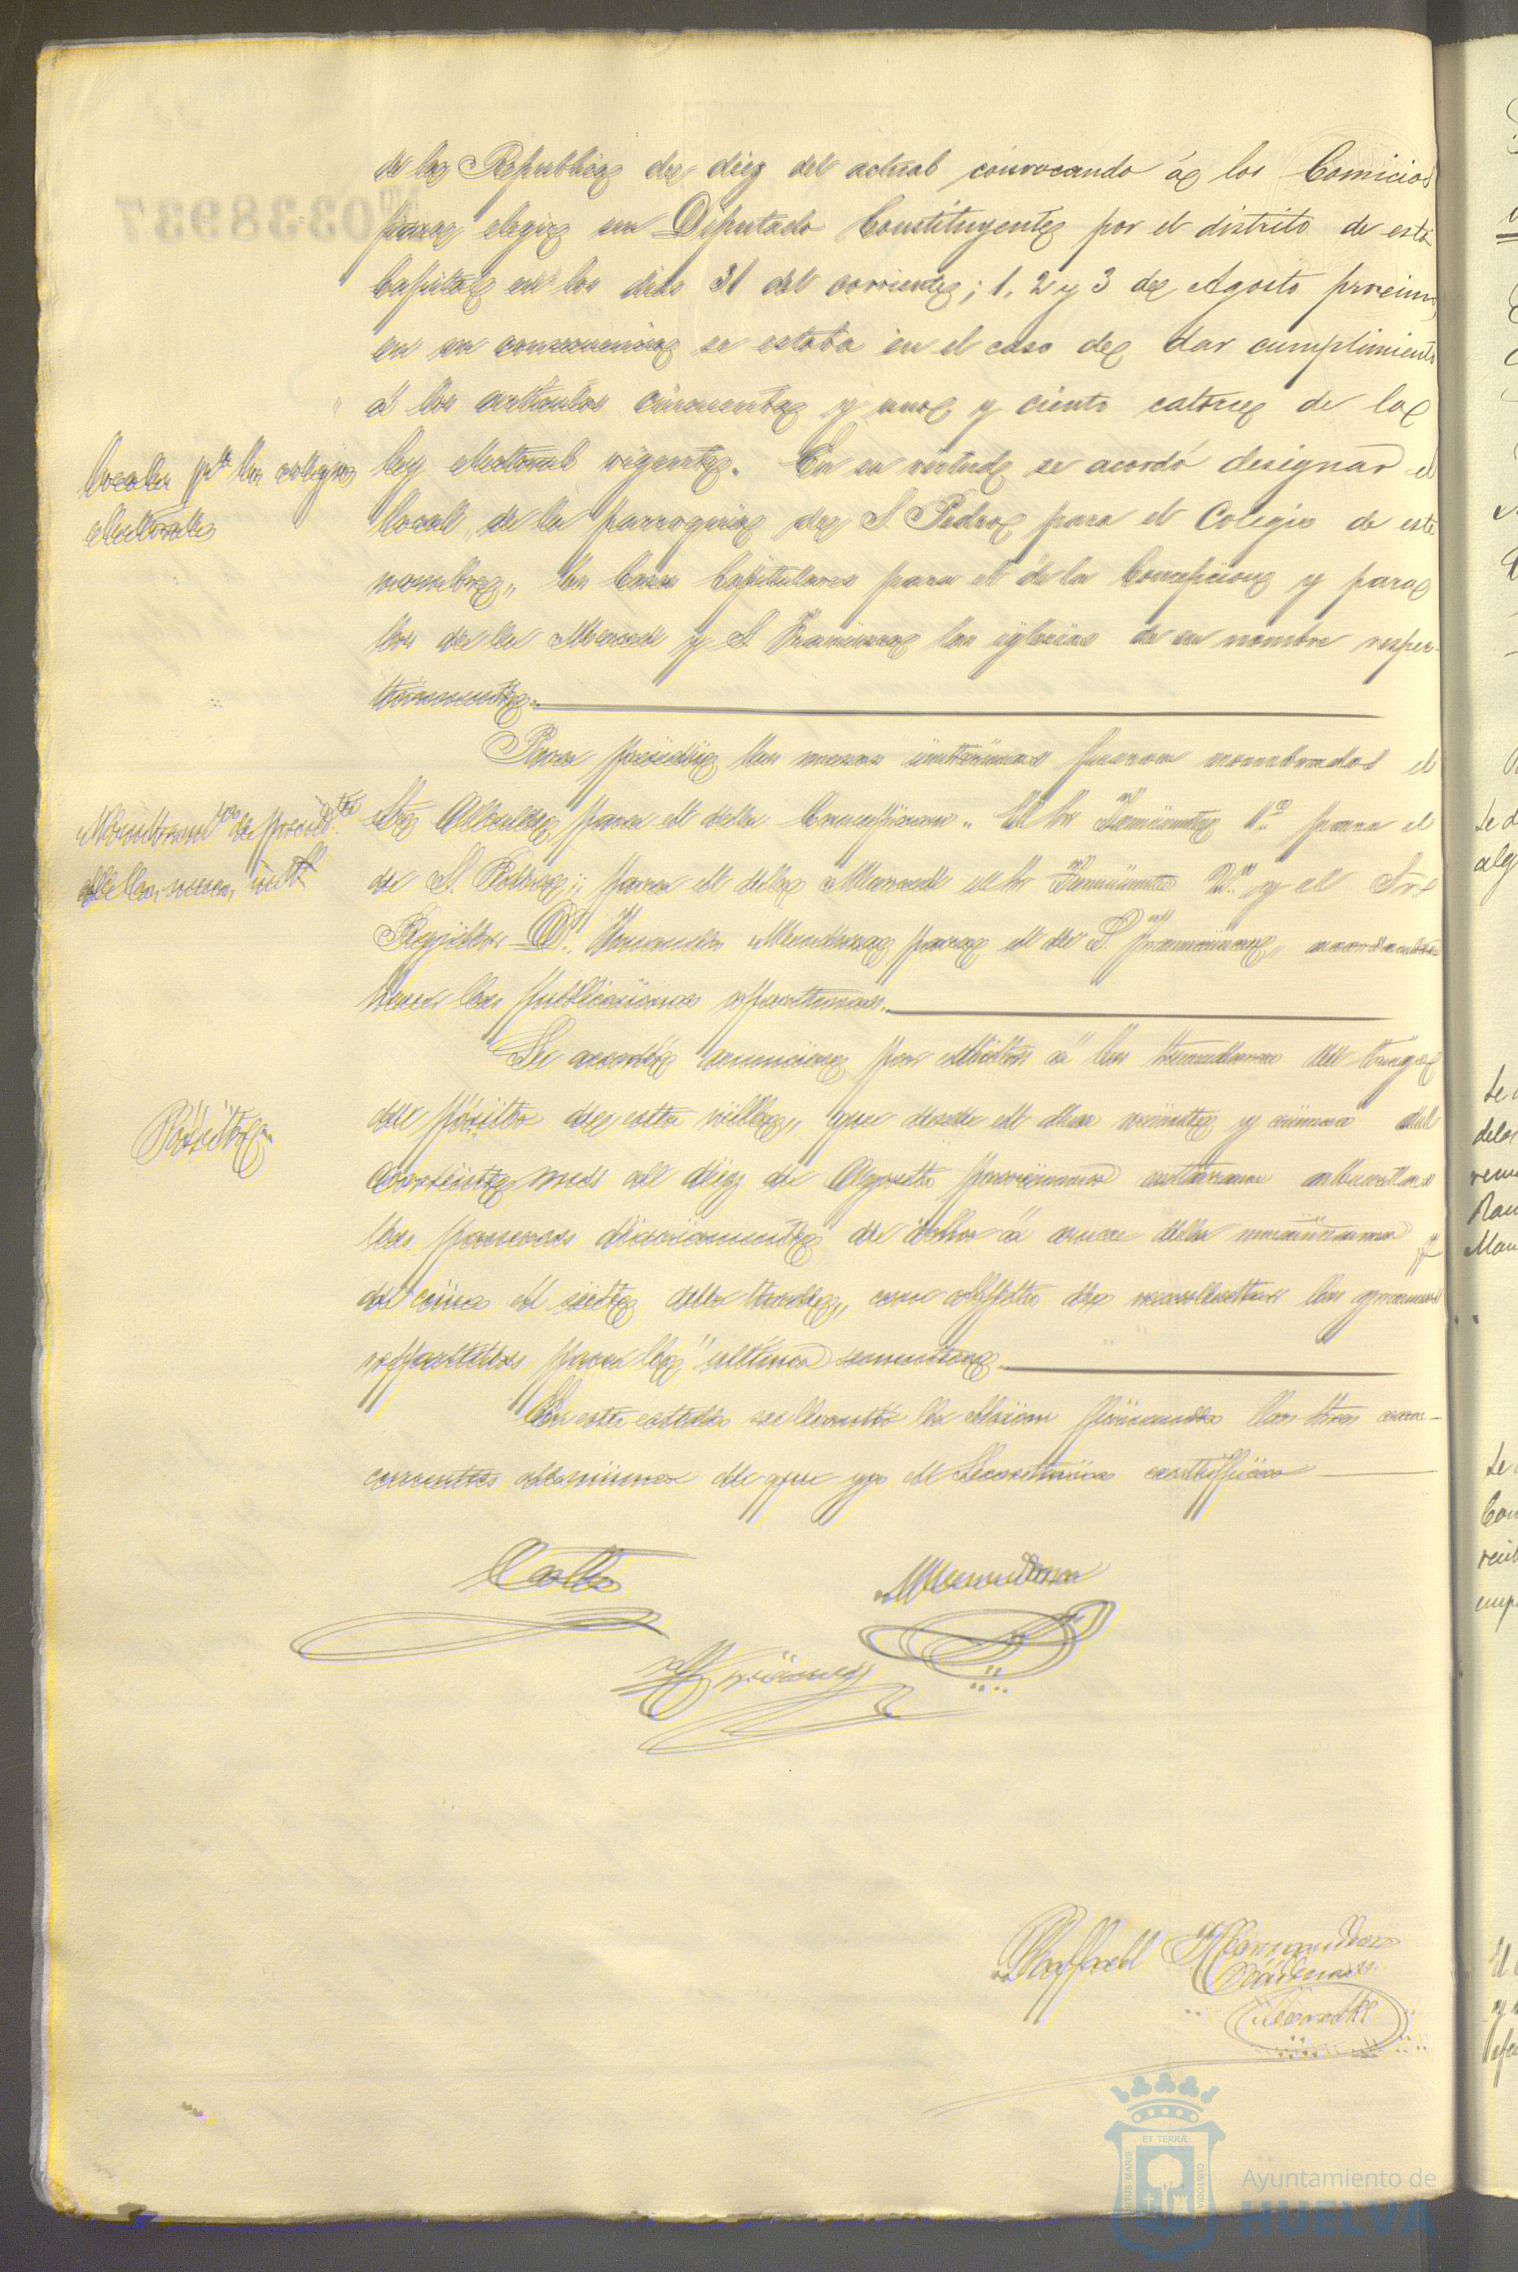 de la Republica de diez del actual convocando á los Comicios
para elegir un Diputado Constituyente por el distrito de esta
Capital en los dias 31 del corriente; 1, 2 y 3 de Agosto proximo
en su consecuencia se estaba en el caso de dar cumplimiento
á los articulos cincuenta y uno y ciento catorce de la
Locales pa los colegios
electorales
ley electoral vigente. En su virtud se acordó designar el
local de la parroquia de S. Pedro para el Colegio de este
nombre, las Casas Capitulares para el de la Concepcion y para
los de la Merced y S. Francisco las iglesias de su nombre respec-
tivamente.
Para presidir las mesas interinas fueron nombrados el
Nombramto de presidtes
de las mesas intes
Sr Alcalde para el de la Concepcion. El Sr Teniente 1º para el
de S. Pedro; para el de la Merced el Sr Teniente 2º y el Sr
Regidor D. Mendoza para el de S. Francisco, acordandose
hacer las publicaciones oportunas.
Se acordó anunciar por edictos á los tenedores de trigo
Pósito
del pósito de esta villa, que desde el dia veinte y cinco del
corriente mes al diez de Agosto proximo estaran abiertas
las paneras diariamente de ocho á once de la mañana y
de cinco á siete de la tarde, con objeto de recolectar los granos
repartidos para la ultima sementera.
En este estado se levantó la sesion firmando los Sres con-
currentes de que yo el Secretario certifico
Mendoza
Rafael Hernandez
Secreto
70338937
ET TERRÆ
PORTUS MARIS
CUSTODIA
Ayuntamiento de
HUELVA